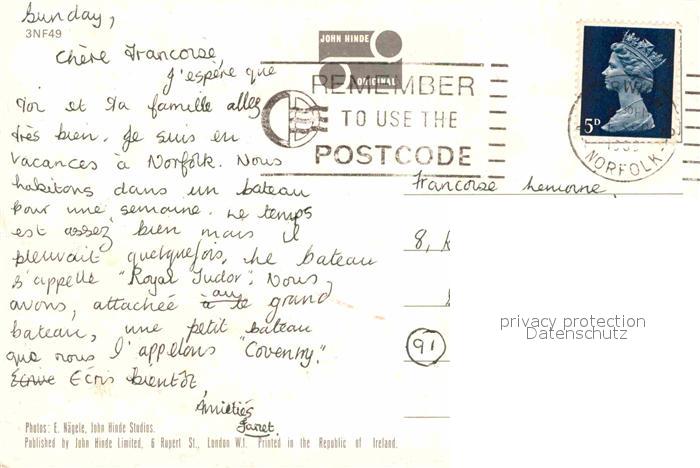 Sunday,
3NF49
Chère Francoise
J'espère que
Toi et Ta famille allez
très bien. Je suis en
vacances à Norfolk. Nous
habitons dans un bateau
pour une semaine. Le temps
est assez bien mais il
pleuvait quelquefois. Le bateau
s'appelle "Royal Tudor". Nous
avons, attachée à le au grand
bateau, une petit bateau
que nous l'appelons "Coventry."
Ecrive Ecris bientôt,
Amitiés
Janet.
Photos: E. Nägele, John Hinde Studios.
Published by John Hinde Limited, 6 Rupert St., London W.1. Printed in the Republic of Ireland.
JOHN HINDE
ORIGINAL
REMEMBER
TO USE THE
POSTCODE
5D
NORFOLK
Francoise Lemoine,
8,
91
privacy protection
Datenschutz